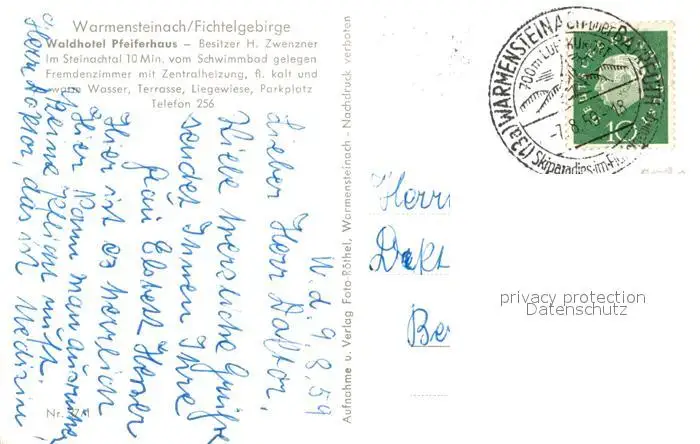 Warmensteinach/Fichtelgebirge
Waldhotel Pfeiferhaus – Besitzer H. Zwenzner
Im Steinachtal 10 Min. vom Schwimmbad gelegen
Fremdenzimmer mit Zentralheizung, fl. kalt und
warm Wasser, Terrasse, Liegewiese, Parkplatz
Telefon 256
W. d. 9. 8. 59
Lieber Herr Doktor,
Viele herzliche Grüße
sendet Ihnen Ihre
Frau Elsbett
Hier ist es herrlich
Hier kann man ausruhen
keine Pflicht ruft.
Herr Doktor, das ist Medizin
Nr. 37/1
Aufnahme u. Verlag Foto-Röthel, Warmensteinach - Nachdruck verboten
(13a) WARMENSTEINACH über BAYREUTH
700 m LUFTKURORT
-7.8.59.-18
Skiparadies im
10
Herr
Dokt
Be
privacy protection
Datenschutz